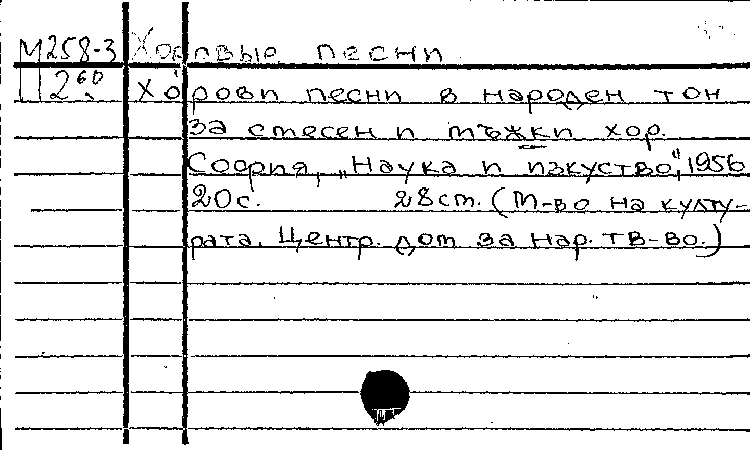 М258-3 Хоровые песни
П260 Хорови песни в народен тон
за смесен и мъжки хор.
София, „Наука и изкуство", 1956
20с. 28см. (М-во на култу-
рата. Центр. дом за нар. тв-во.)